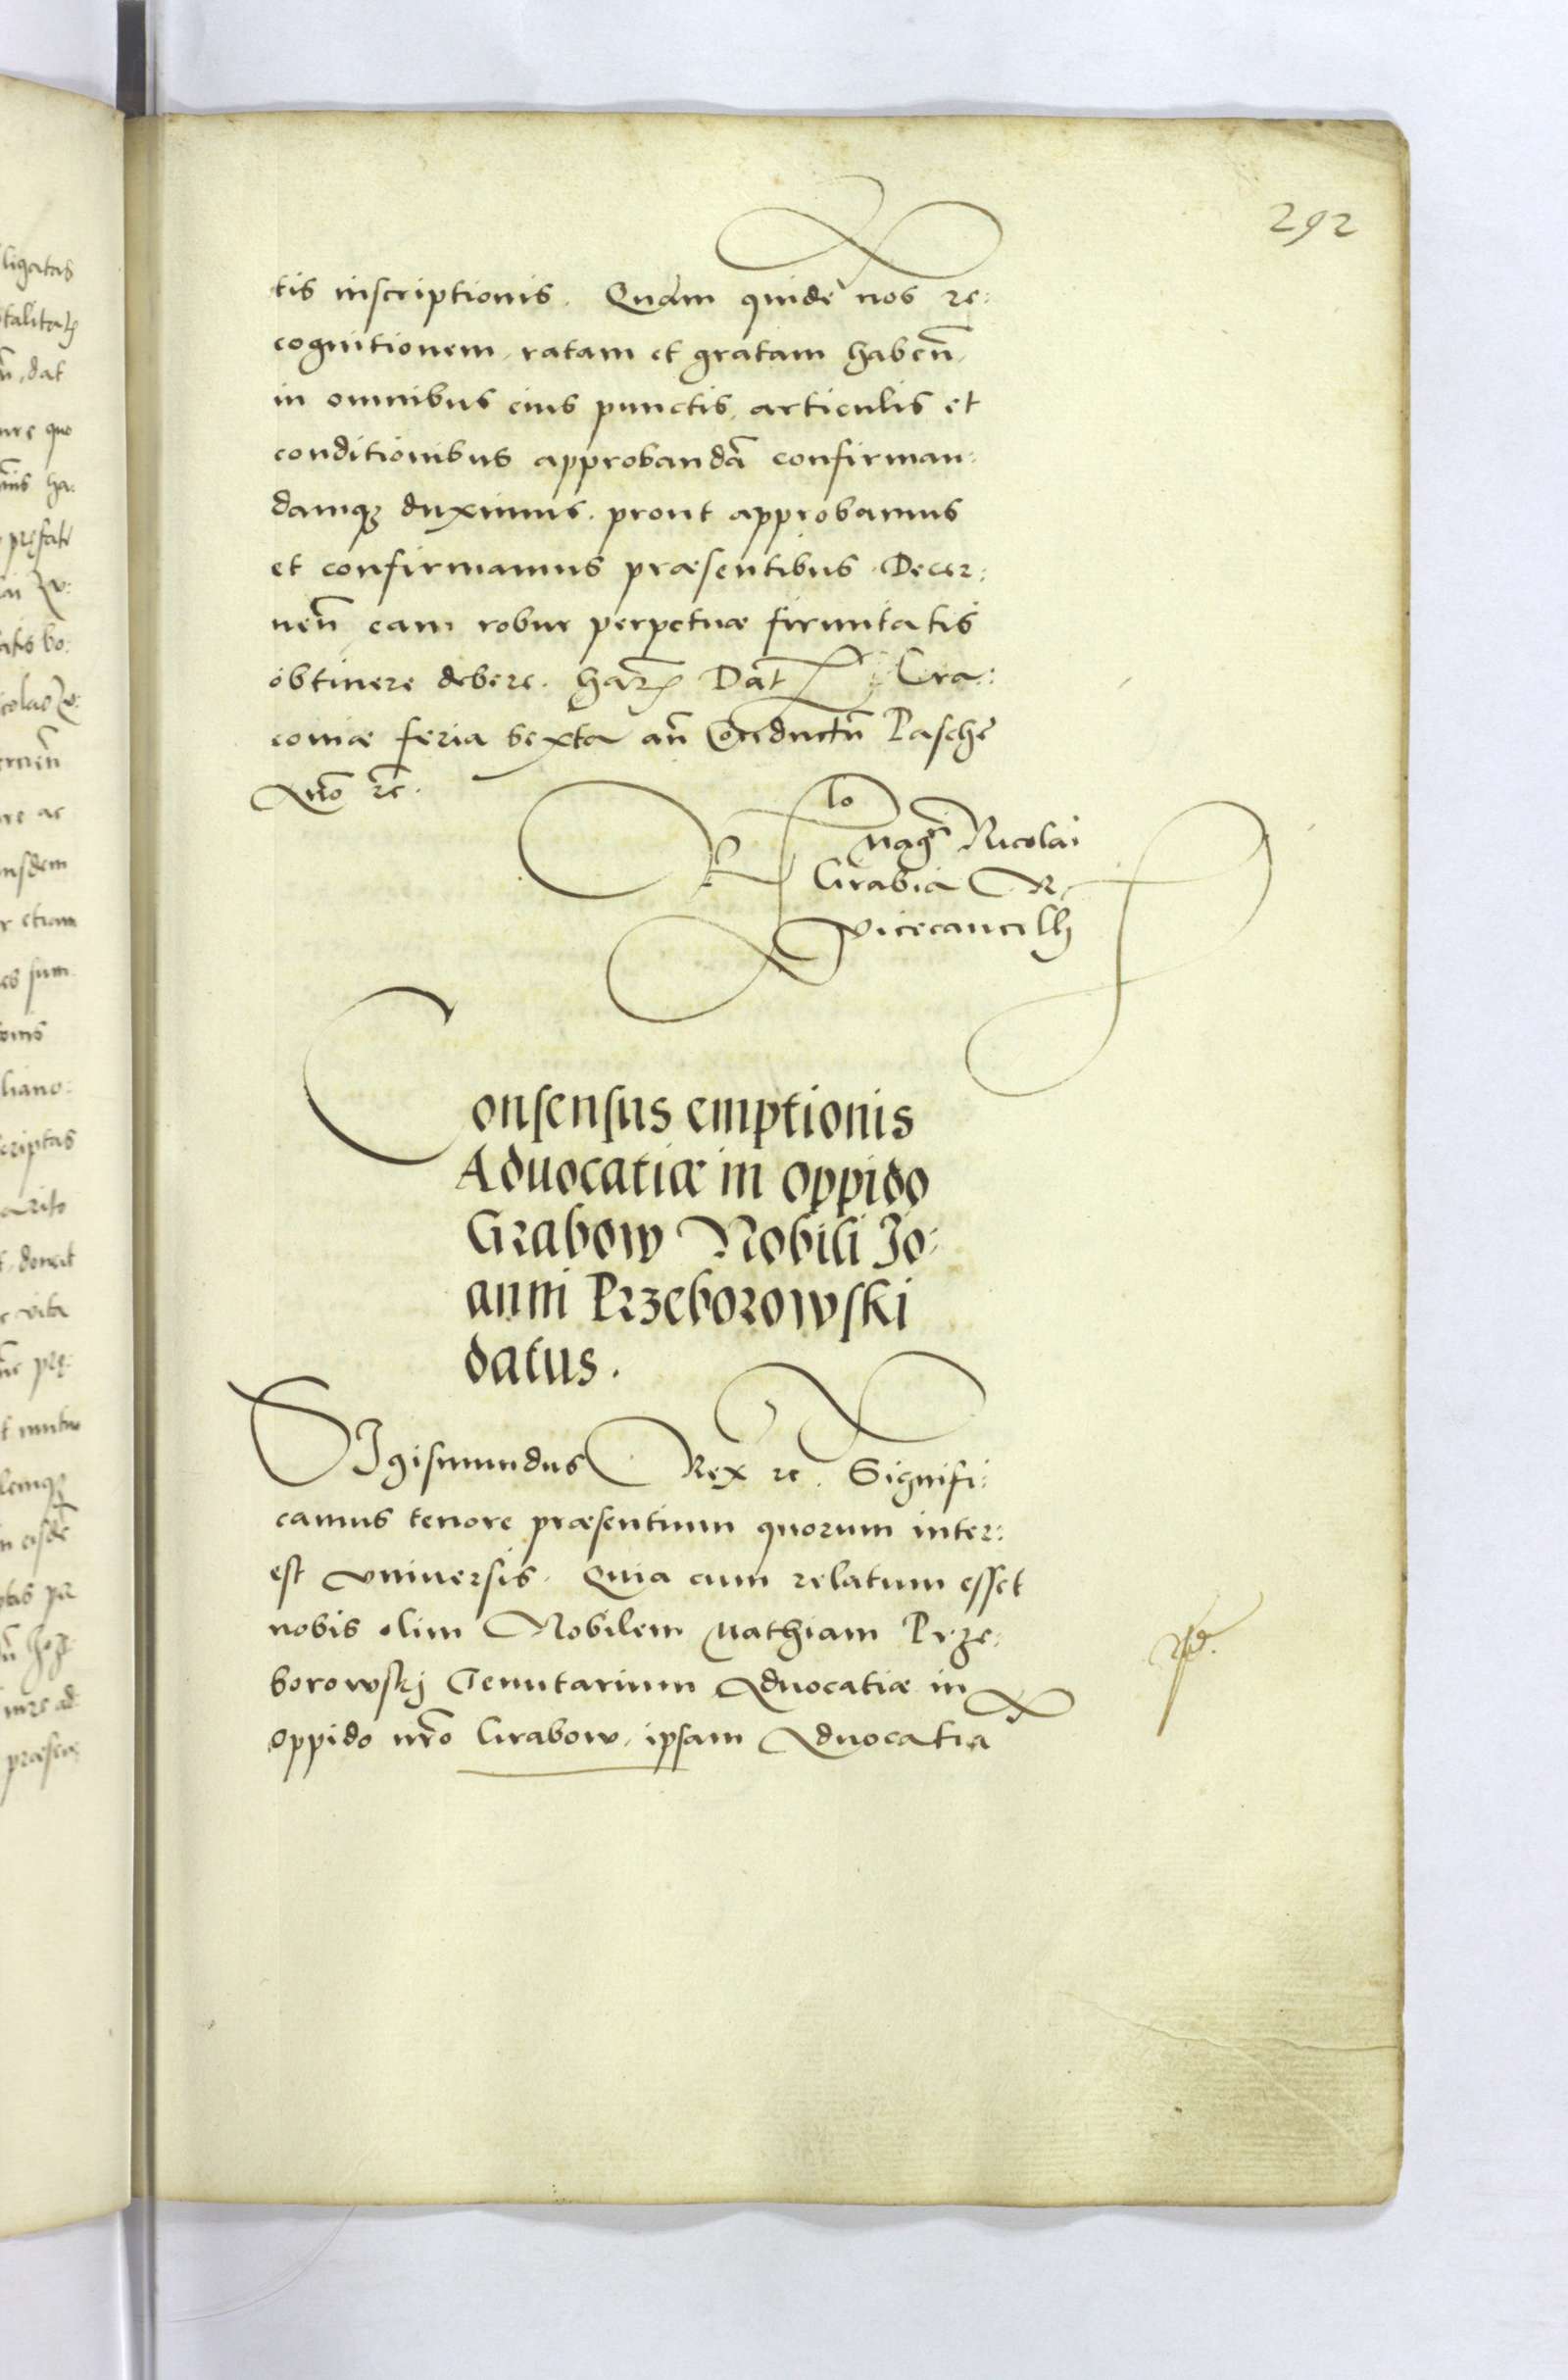 292
tis inscriptionis. Quam quidē nos re:
cognitionem, ratam et gratam habeñ,
in omnibus eius punctis, articulis et
conditionibus approbandā confirman:
damqꝫ duximus. prout approbamus
et confirmamus præsentibus. Decer:
neñ eam robur perpetuæ firmitatis
obtinere debere. harꝫ Dat̄ Cra:
coviæ feria sexta añ Conductū Paschę
Año ꝛc̄.
Rlo
Mag Nicolai
Grabia R
Vicecancelh
Consensus emptionis
Aduocatiæ in oppido
Grabow Nobili Jo:
anni Przeborowski
datus.
SIgismundus Rex ꝛc. Signifi:
camus tenore præsentium quorum inter:
est vniuersis. Quia cum relatum esset
nobis olim Nobilem Mathiam Prze:
borowskj Tenutarium Aduocatiæ in
oppido nr̄o Grabow, ipsam Aduocatiā
ligatas
dat
ure quo
ha:
atis bo:
re ac
usdem
r etiam
es sum
liano:
criptas
donec
vita
præsen